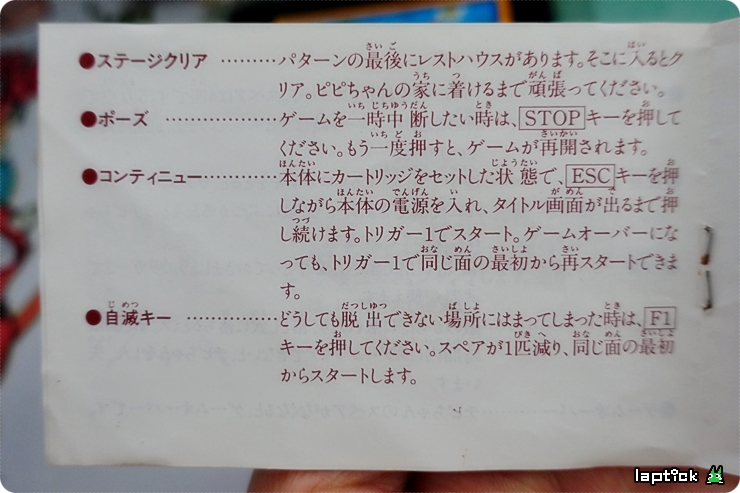 ●ステージクリア ………パターンの最後にレストハウスがあります。そこに入るとク
リア。ピピちゃんの家に着けるまで頑張ってください。
●ポーズ ………………ゲームを一時中断したい時は、STOPキーを押して
ください。もう一度押すと、ゲームが再開されます。
●コンティニュー…………本体にカートリッジをセットした状態で、ESCキーを押
しながら本体の電源を入れ、タイトル画面が出るまで押
し続けます。トリガー1でスタート。ゲームオーバーにな
っても、トリガー1で同じ面の最初から再スタートできま
す。
●自滅キー ……………どうしても脱出できない場所にはまってしまった時は、F1
キーを押してください。スペアが1匹減り、同じ面の最初
からスタートします。
laptick